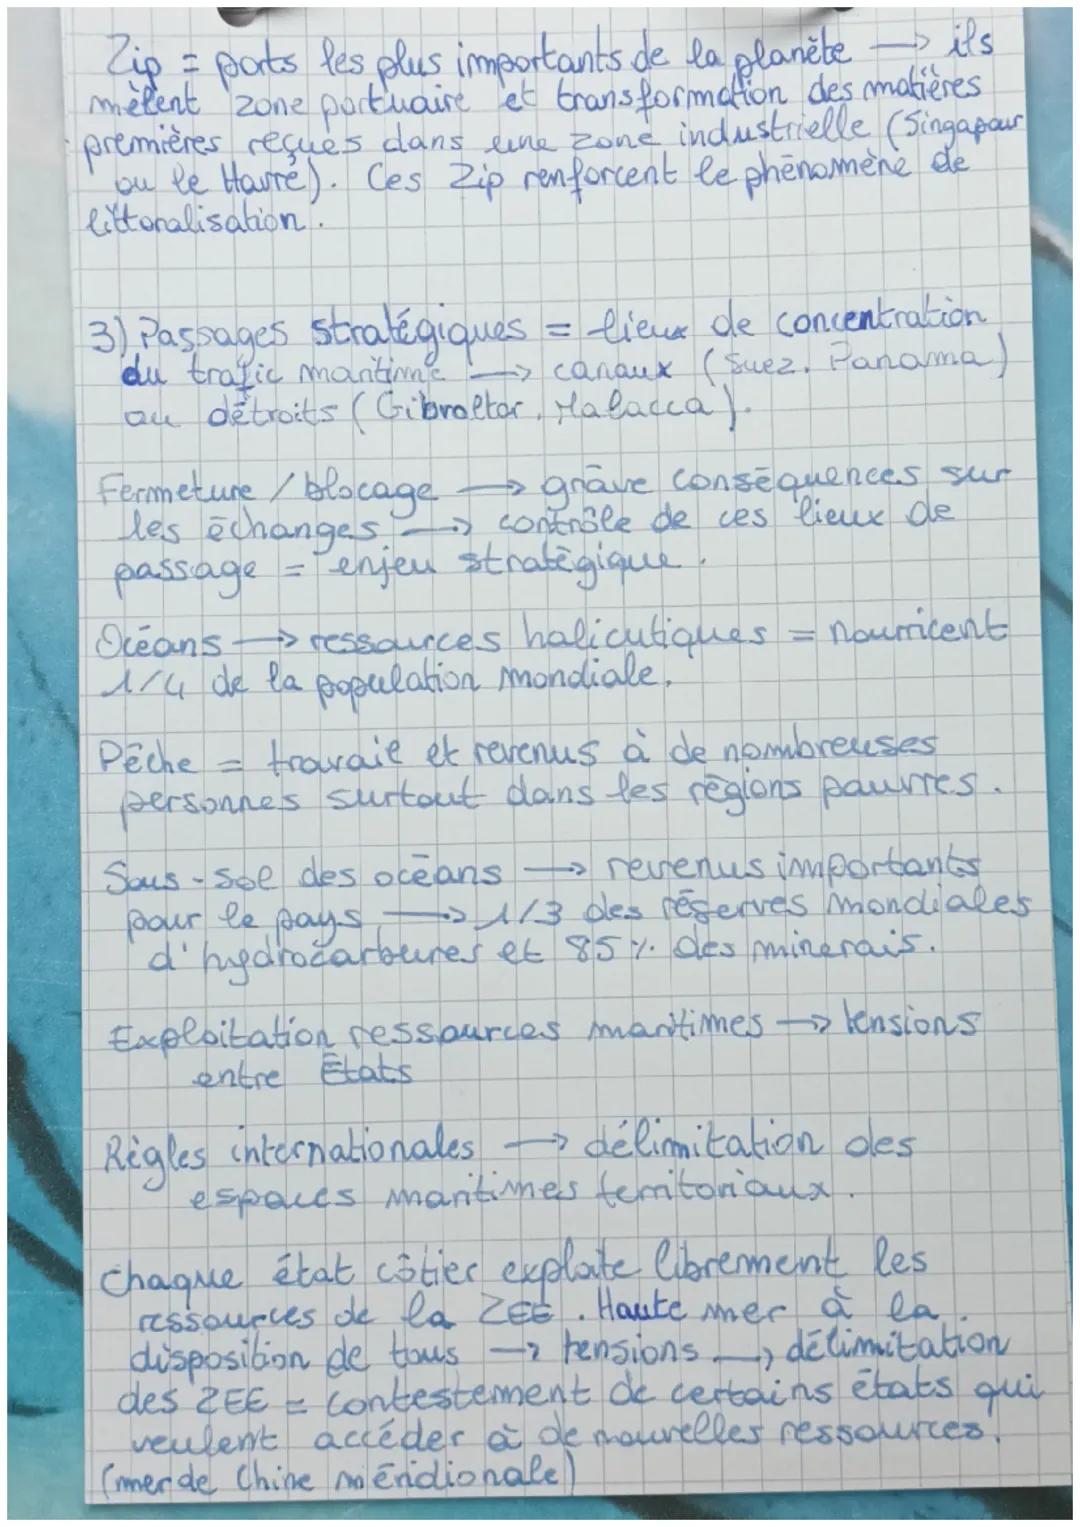 Zip = ports les plus importants de la planète → ils
mêlent zone portuaire et transformation des matières
premières reçues dans une zone industrielle (Singapour
ou le Havre). Ces Zip renforcent le phénomène de
littoralisation.
3) Passages stratégiques = lieux de concentration
du trafic maritime → canaux (Suez, Panama)
ou détroits (Gibraltar, Malacca).
Fermeture / blocage → grave conséquences sur
les échanges → contrôle de ces lieux de
passage = enjeu stratégique.
Océans → ressources halicutiques = nourricent
1/4 de la population mondiale.
Pêche = travail et revenus à de nombreuses
personnes surtout dans les régions pauvres.
Sous-sol des océans → revenus importants
pour le pays → 1/3 des réserves mondiales
d'hydrocarbures et 85% des minerais.
Exploitation ressources maritimes → tensions
entre États
Règles internationales → délimitation des
espaces maritimes territoriaux.
Chaque état côtier exploite librement les
ressources de la ZEE. Haute mer à la
disposition de tous → tensions → délimitation
des ZEE = contestement de certains états qui
veulent accéder à de nouvelles ressources.
(mer de Chine méridionale)